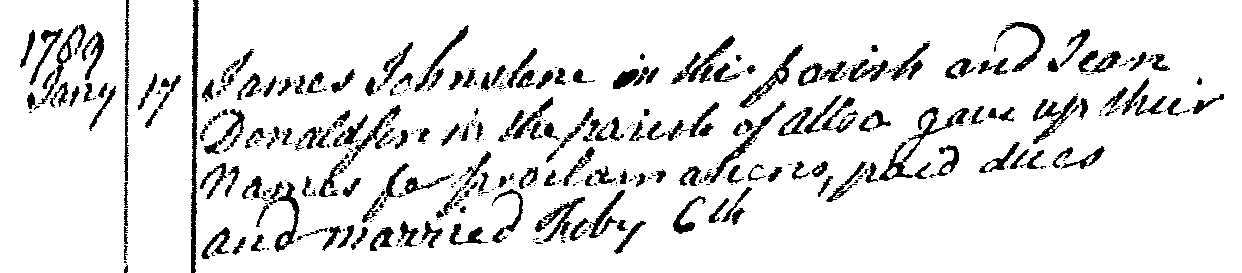 1789
Jany 17 James Johnstone in this parish and Jean
Donaldson in the parish of Alloa gave up their
Names for proclamations, paid dues
and married Feby 6th